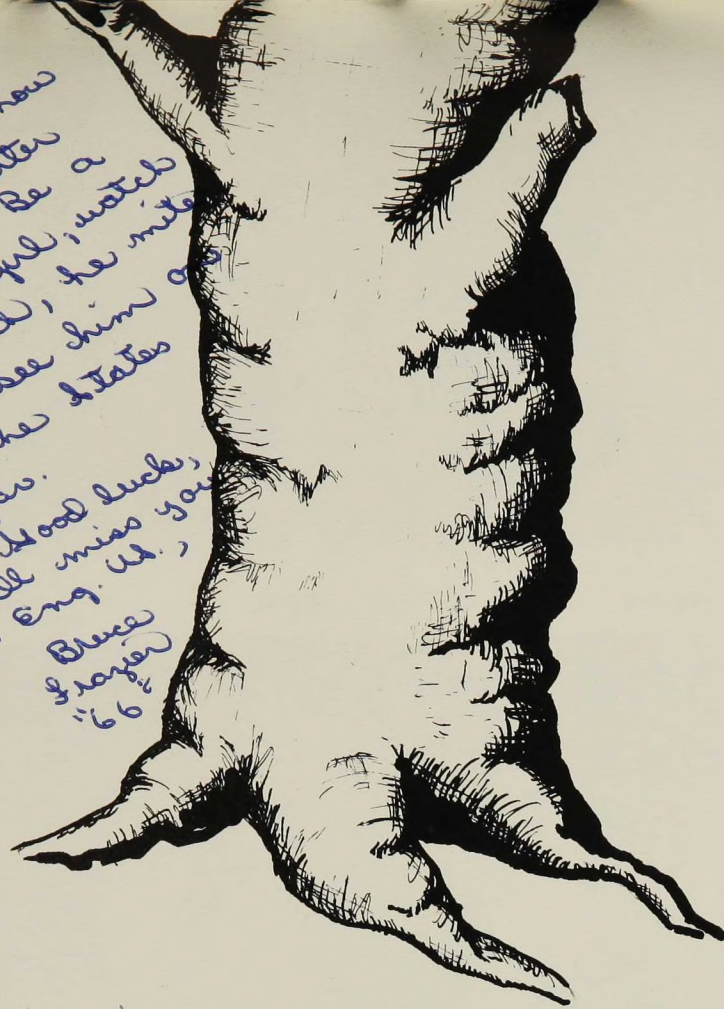 now
Be a
girl, watch
, he mite
see him on
the States
Good luck,
miss you
Eng. III.,
Bruce
Frazier
"66"